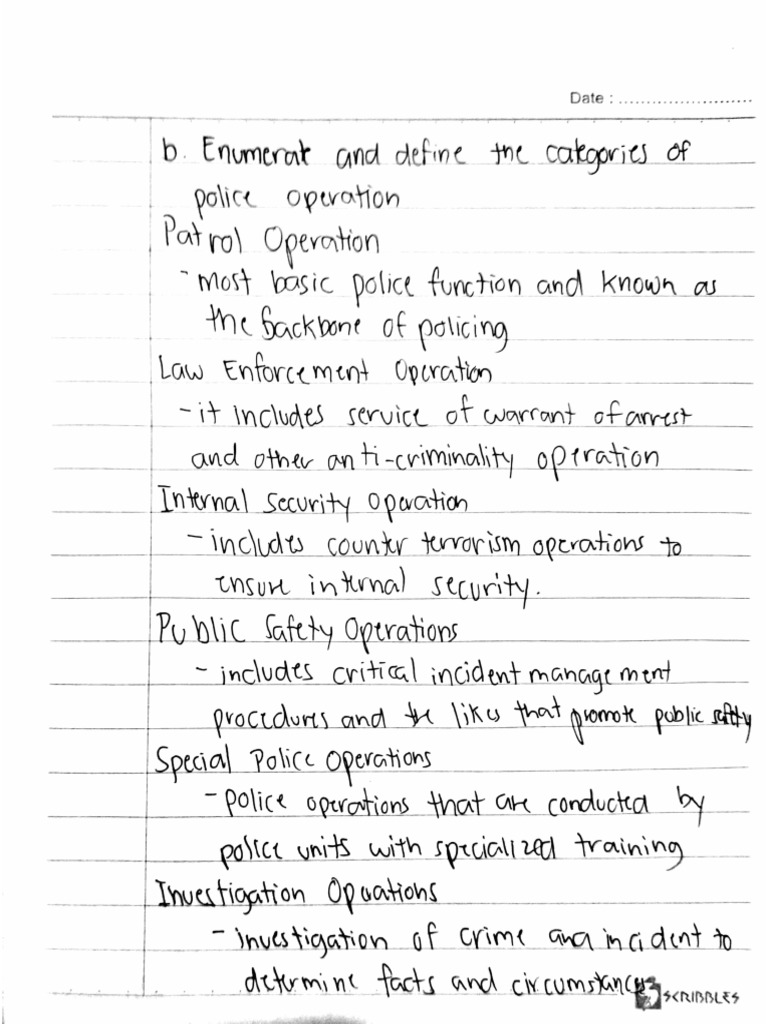 Date : ........................
b. Enumerate and define the categories of
police operation
Patrol Operation
- most basic police function and known as
the backbone of policing
Law Enforcement Operation
- it includes service of warrant of arrest
and other anti-criminality operation
Internal Security Operation
- includes counter terrorism operations to
ensure internal security.
Public Safety Operations
- includes critical incident management
procedures and the likes that promote public safety
Special Police Operations
- police operations that are conducted by
police units with specialized training
Investigation Operations
- investigation of crime and incident to
determine facts and circumstances
SCRIBBLES